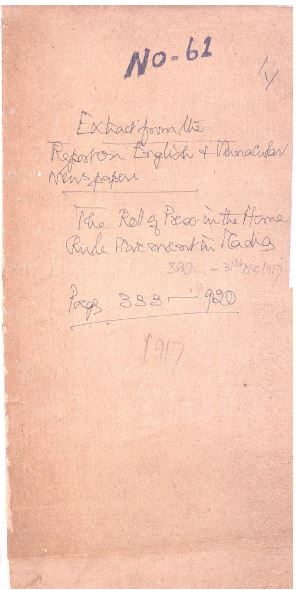 No-61
Extract from the
Report on English & Vernacular
Newspapers
The Roll of Press in the Home
Rule Movement in Madras
- 31st Dec 1917
Pages 333 — 920
1917